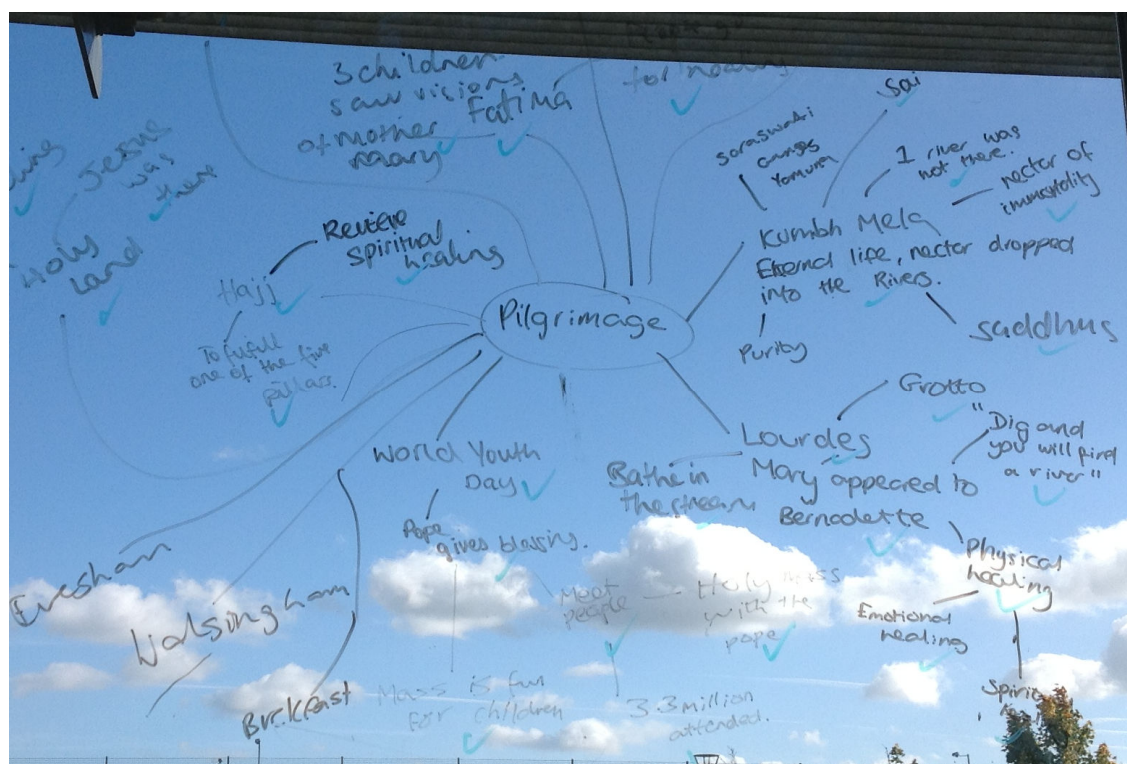 3 children
saw visions
of mother
mary
Fatima
for healing
Sai
Saraswati
Ganges
Yamuna
1 river was
not there.
nectar of
immortality
Kumbh Mela
Eternal life, nectar dropped
into the Rivers.
Purity
saddhus
Jesus
was
there
Holy
Land
Revere
spiritual
healing
Hajj
To fufull
one of the five
pillars.
Pilgrimage
World Youth
Day
Pope
gives blessing.
Meet
people
Holy mass
with the
pope
Mass is fun
for children
3.3 million
attended.
Lourdes
Grotto
Bathe in
the stream
Mary appeared to
Bernadette
"Dig and
you will find
a river"
Physical
healing
Emotional
healing
Evesham
Walsingham